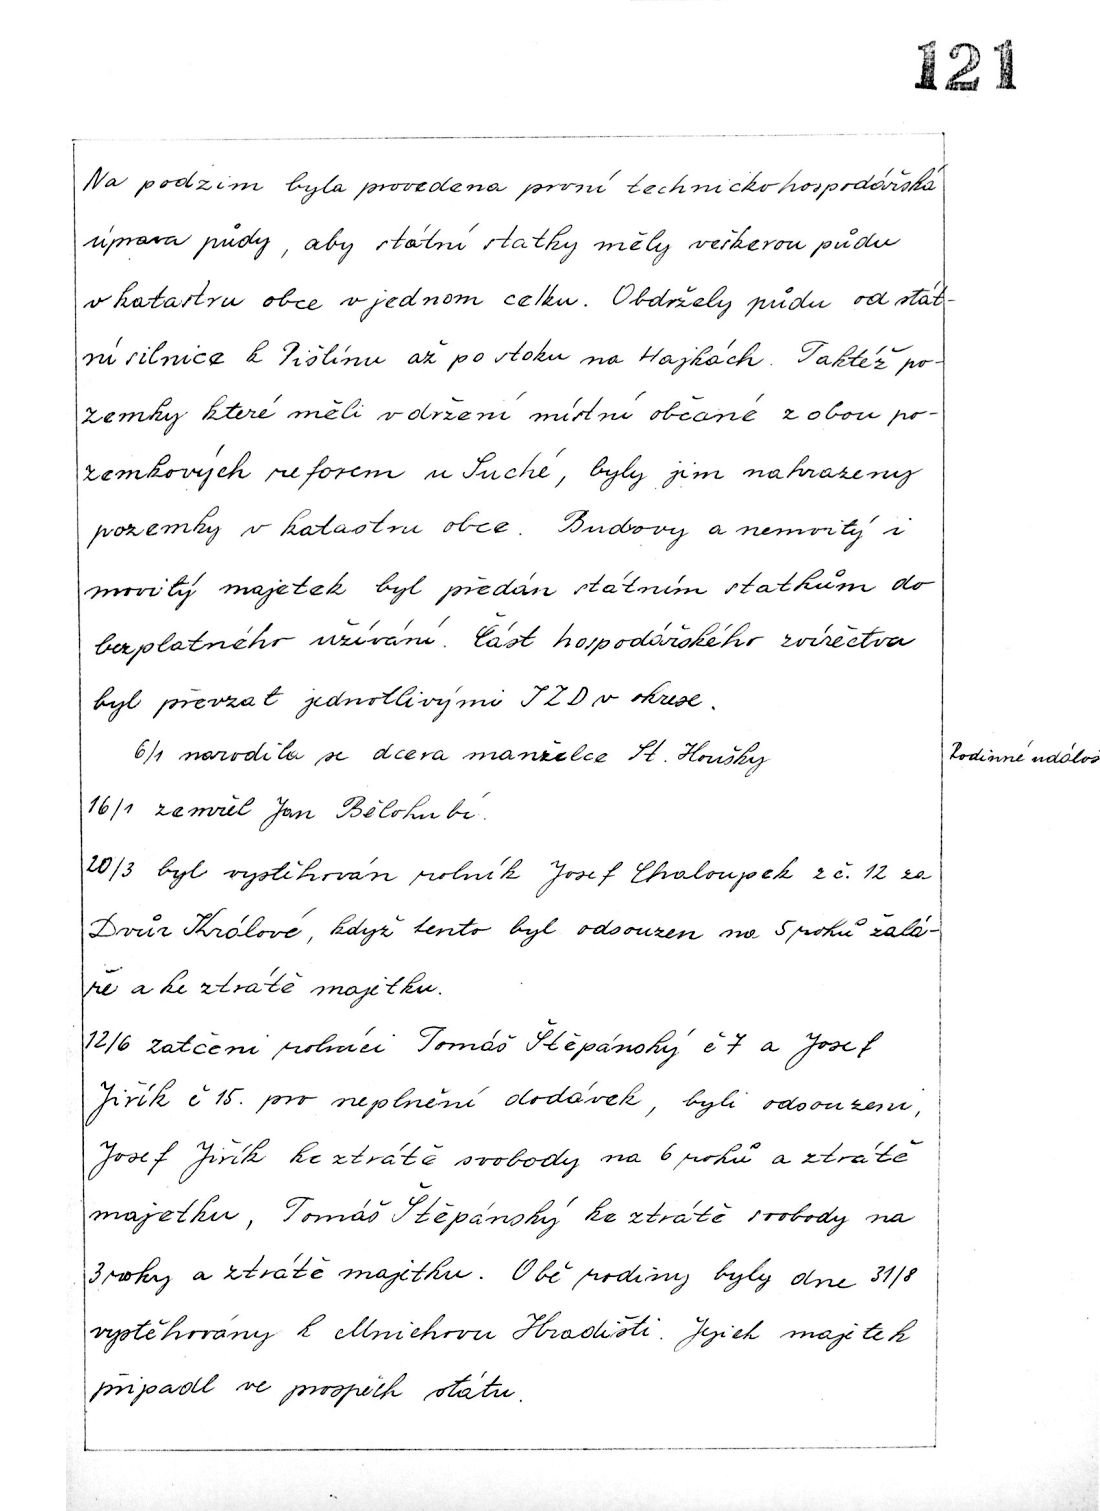 121
Na podzim byla provedena první technickohospodářská
úprava půdy, aby státní statky měly veškerou půdu
v katastru obce v jednom celku. Obdržely půdu od stát-
ní silnice k Pištínu až po stoku na Hajkách. Taktéž po-
zemky které měli v držení místní občané z obou po-
zemkových reforem u Suché, byly jim nahrazeny
pozemky v katastru obce. Budovy a nemovitý i
movitý majetek byl předán státním statkům do
bezplatného užívání. Část hospodářského zvířectva
byl převzat jednotlivými JZD v okrese.
6/1 narodila se dcera manželce St. Houšky
Rodinné událos
16/1 zemřel Jan Bělohubí.
20/3 byl vystěhován rolník Josef Chaloupek z č. 12 za
Dvůr Králové, když tento byl odsouzen na 5 roků žalá-
ře a ke ztrátě majetku.
12/6 zatčeni rolníci Tomáš Štěpánský č 7 a Josef
Jiřík č 15. pro neplnění dodávek, byli odsouzeni,
Josef Jiřík ke ztrátě svobody na 6 roků a ztrátě
majetku, Tomáš Štěpánský ke ztrátě svobody na
3 roky a ztrátě majetku. Obě rodiny byly dne 31/8
vystěhovány k Mnichovu Hradišti. Jejich majetek
připadl ve prospěch státu.